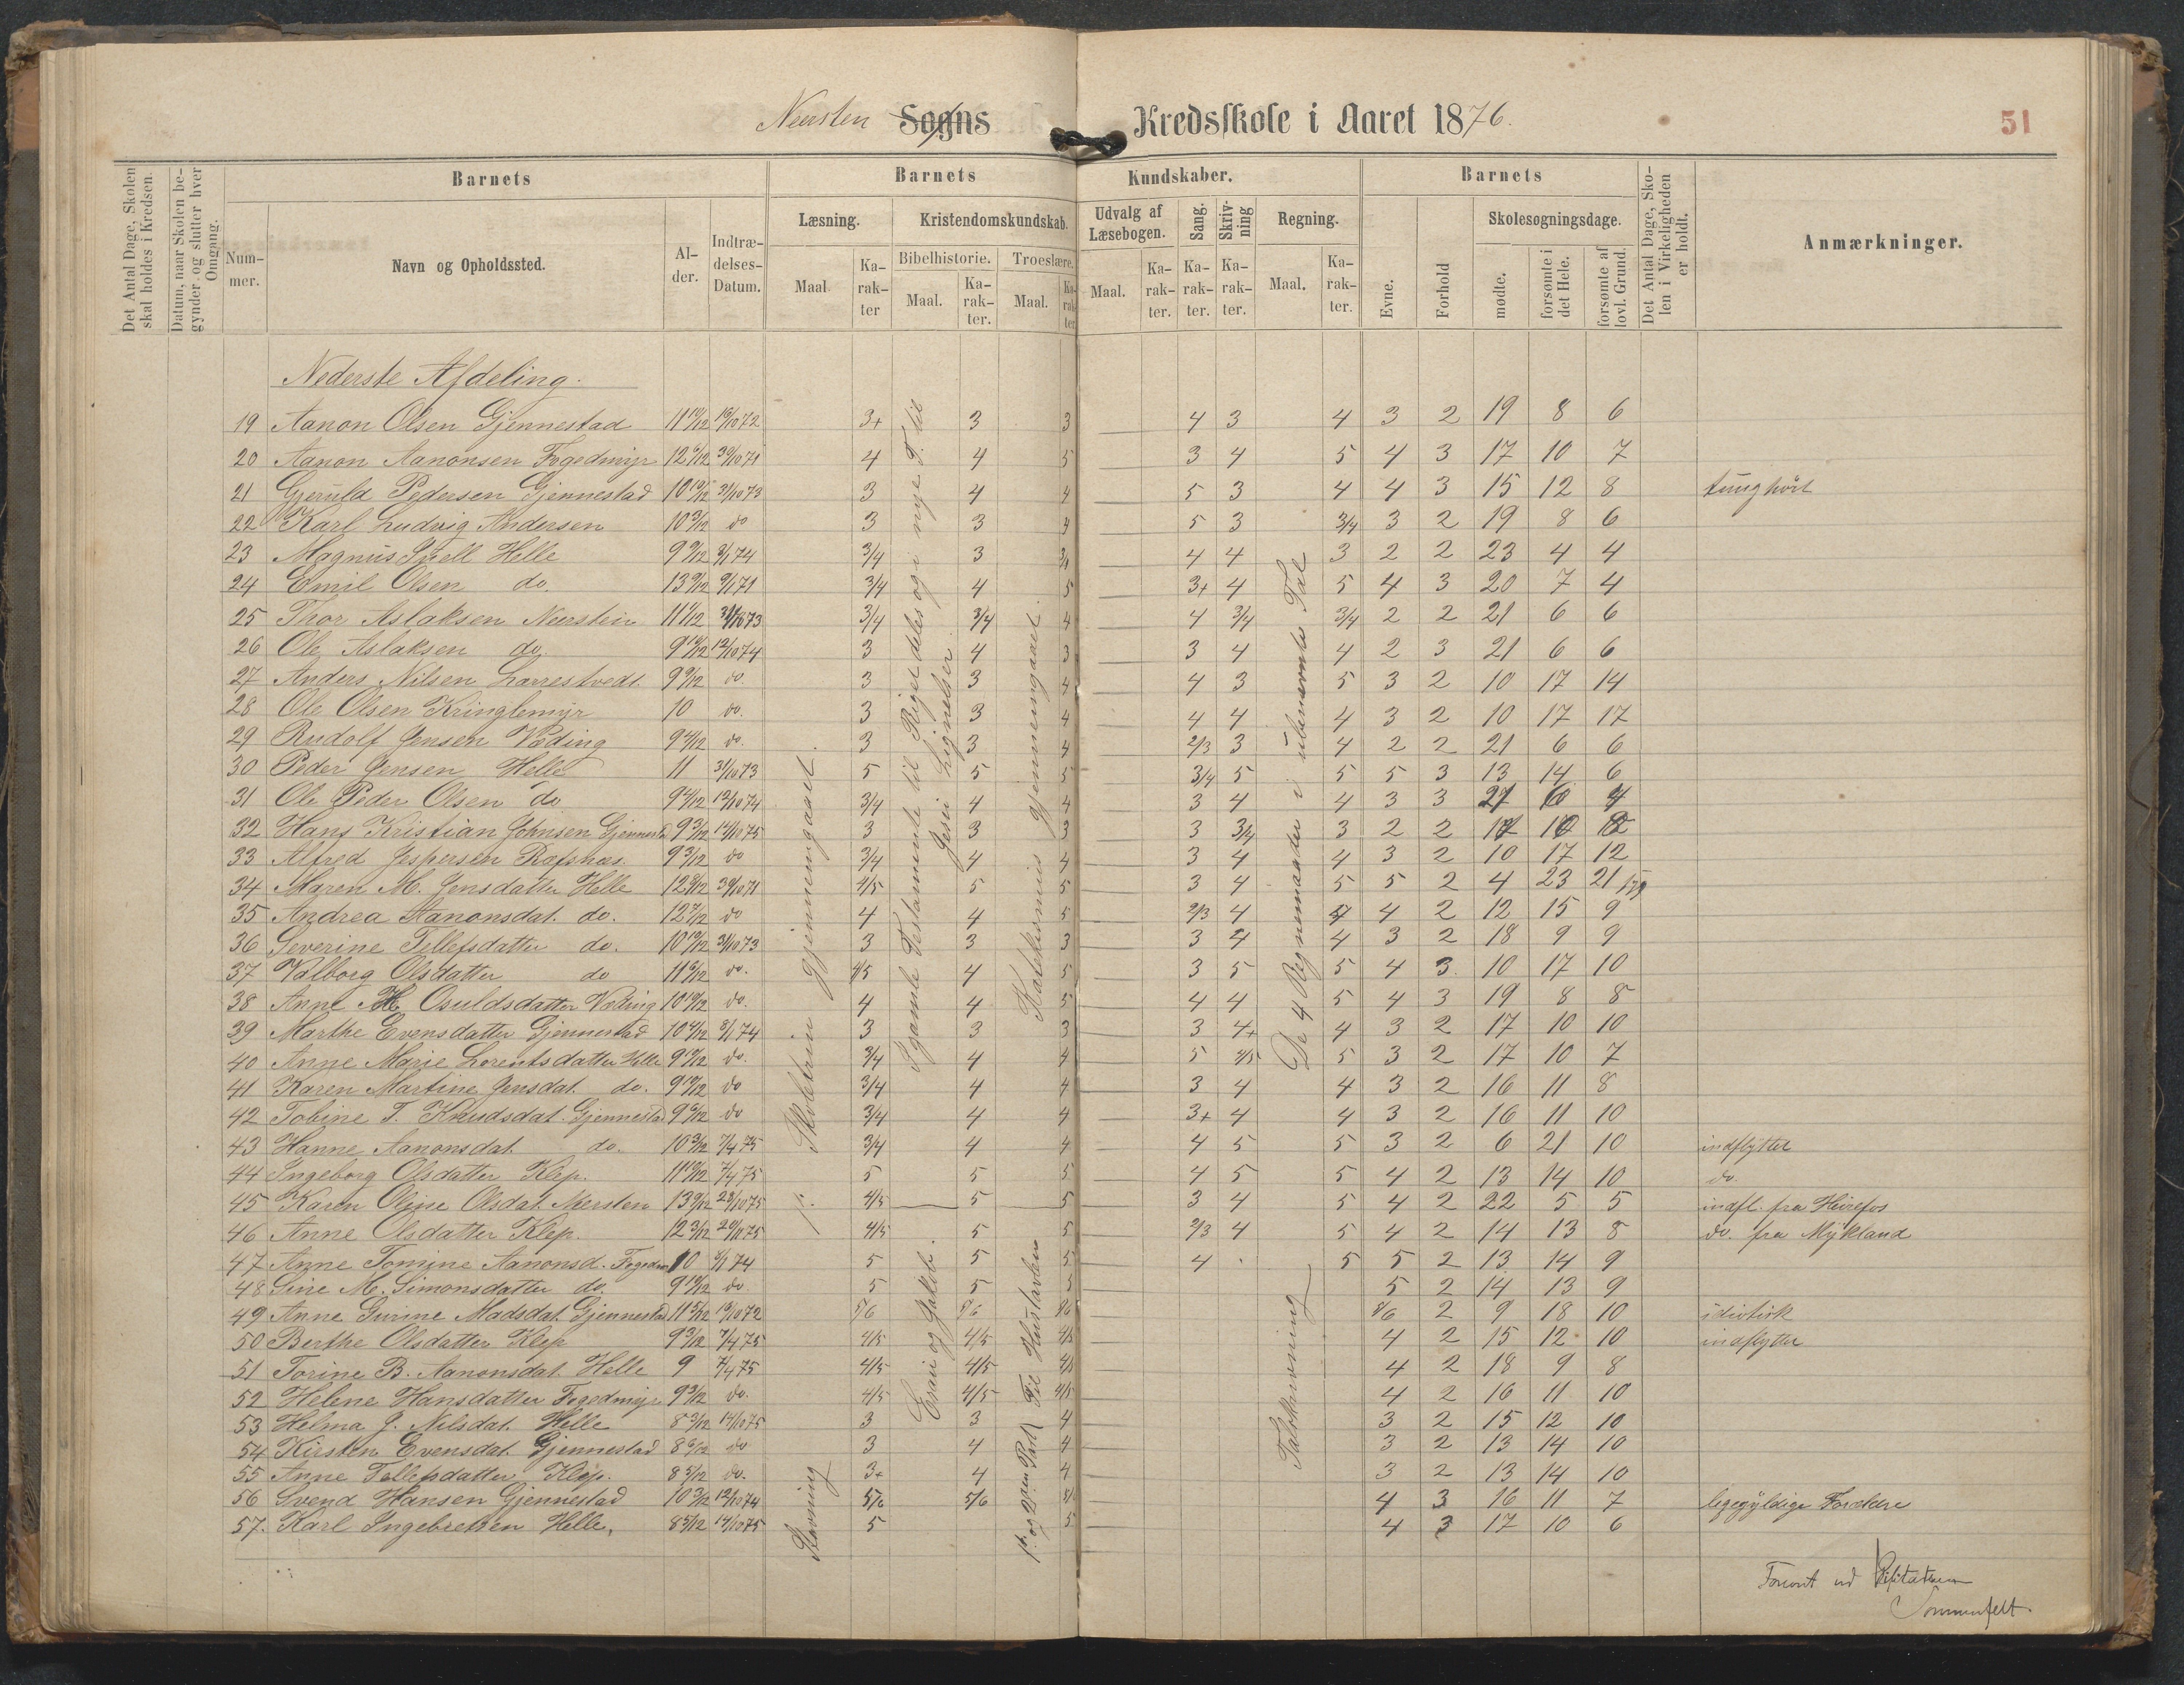 Neersten Sogns Kredsskole i Aaret 1876.
51
Det Antal Dage, Skolen skal holdes i Kredsen.
Datum, naar Skolen begynder og slutter hver Omgang.
Barnets
Barnets Kundskaber.
Barnets
Det Antal Dage, Skolen i Virkeligheden er holdt.
Anmærkninger.
Nummer.
Navn og Opholdssted.
Alder.
Indtrædelses-Datum.
Læsning.
Kristendomskundskab.
Udvalg af Læsebogen.
Sang.
Skrivning
Regning.
Evne.
Forhold
Skolesøgningsdage.
Bibelhistorie.
Troeslære.
Maal
Karakter
Maal.
Karakter.
Maal.
Karakter
Maal.
Karakter.
Karakter.
Karakter.
Maal.
Karakter.
mødte.
forsømte i det Hele.
forsømte af lovl. Grund.
Nederste Afdeling.
19 Aanon Olsen Gjennestad 11 10/12 3+ 3 3 4 3 4 3 2 19 8 6
20 Aanon Aanonsen Fogedmyr 4 4 5 3 4 5 4 3 17 10 7
21 Gjeruld Pedersen Gjennestad 10 10/12 31/10 73 3 4 4 5 3 4 4 3 15 12 8 tunghört
22 Karl Ludvig Andersen do 3 3 4 5 3 3/4 3 2 19 8 6
23 Magnus Helle 3/4 3 4 4 3 2 2 23 4 4
24 Emil Olsen do. 3/4 4 5 3+ 4 5 4 3 20 7 4
25 Thor Aslaksen Neerstein 3/4 3/4 4 4 3/4 3/4 2 2 21 6 6
26 Ole Aslaksen do. 12/10 74 3 4 3 3 4 4 2 3 21 6 6
27 Anders Nilsen Larrestvedt do. 3 3 4 4 3 5 3 2 10 17 14
28 Ole Olsen Kringlemyr 10 do. 3 3 4 4 4 4 3 2 10 17 17
29 Rudolf Jensen Væding do. 3 3 4 2/3 3 4 2 2 21 6 6
30 Peder Jensen Helle 11 31/10 73 5 5 5 3/4 5 5 5 3 13 14 6
31 Ole Peder Olsen do 12/10 74 3/4 4 4 3 4 4 3 3
32 Hans Kristian Johnsen Gjennestd 9 3/12 14/10 75 3 3 3 3 3/4 3 2 2
33 Alfred Jespersen Rafsnæs. 9 3/12 do 3/4 4 4 3 4 4 3 2 10 17 12
34 Maren M. Jensdatter Helle 4/5 5 5 3 4 5 5 2 4 23 21
35 Andrea Aanonsdat. do. 12 7/12 do 4 4 5 2/3 4 4 2 12 15 9
36 Severine Tellefsdatter do. 10 10/12 31/10 73 3 3 3 3 4 4 3 2 18 9 9
37 Valborg Olsdatter do 11 6/12 do. 4/5 4 5 3 5 5 4 3 10 17 10
38 Anne H. Osuldsdatter Væding 10 10/12 do. 4 4 5 4 4 5 4 3 19 8 8
39 Marthe Evensdatter Gjennestad 8/1 74 3 3 3 3 4+ 4 3 2 17 10 10
40 Anne Marie Lorentsdatter Helle do. 3/4 4 4 5 4/5 5 3 2 17 10 7
41 Karen Martine Jensdat. do. do 3/4 4 4 3 4 4 3 2 16 11 8
42 Tobine T. Knudsdat. Gjennestad 9 6/12 do 3/4 4 4 3+ 4 4 3 2 16 11 10
43 Hanne Aanonsdat. do. 10 3/12 7/4 75 3/4 4 4 4 5 5 3 2 6 21 10 indflytter
44 Ingeborg Olsdatter Klep. 11 10/12 7/4 75 5 5 5 4 5 5 4 2 13 14 10 do.
45 Karen Oline Olsdat. Nersten 28/10 75 4/5 5 5 3 4 5 4 2 22 5 5 indfl. fra Heirefos
46 Anne Olsdatter Klep. 12 3/12 4/5 5 5 2/3 4 5 4 2 14 13 8 do. fra Mykland
47 Anne Tomine Aanonsd. Fogedm 10 5 5 5 4 5 5 2 13 14 9
48 Sine M. Simonsdatter do. do. 5 5 5 5 2 14 13 9
49 Anne Gurine Madsdat. Gjennestad 5/6 5/6 5/6 5/6 2 9 18 10 idiotisk
50 Berthe Olsdatter Klep 9 3/12 7/4 75 4/5 4/5 4/5 4 2 15 12 10 indflytter
51 Torine B. Aanonsdat. Helle 9 7/4 75 4/5 4/5 4/5 4 2 18 9 8
52 Helene Hansdatter Fogedmyr 9 3/12 do. 4/5 4/5 4/5 4 2 16 11 10
53 Helma J. Nilsdat. Helle 8 3/12 14/10 75 3 3 4 3 2 15 12 10
54 Kirsten Evensdat. Gjennestad 8 6/12 do 3 4 4 3 2 13 14 10
55 Anne Tellefsdatter Klep. 8 5/12 do. 3+ 4 4 3 2 13 14 10
56 Svend Hansen Gjennestad 10 3/12 12/10 74 5/6 5/6 5/6 4 3 16 11 7 ligegyldige Forældre
57. Karl Ingebretsen Helle, 8 5/12 14/10 75 5 5 4 3 17 10 6
Skolebren gjennemgaaet
Stavning
gamle Testamente til Riget deles og i nye T. til Jesu Lignelser
Esau og Jakob.
Katekismus gjennemgaaet.
1ste og 2den Part Til Hustavlen
De 4 Regnemaader i ubenævnte Tal
Talskrivning
Forevist ved Visitatsen
Sommerfelt.